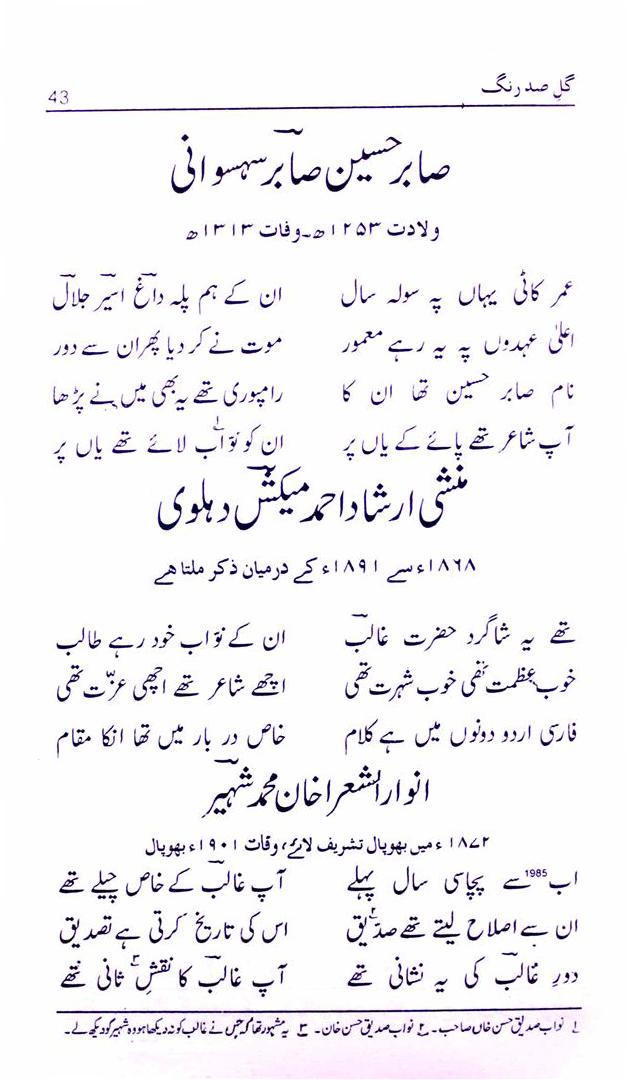 گلِ صد رنگ 43
صابر حسین صابر سہسوانی
ولادت ۱۲۵۳ھ۔وفات ۱۳۱۳ھ
عمر کاٹی یہاں پہ سولہ سال ان کے ہم پلہ داغ اسیر جلال
اعلیٰ عہدوں پہ یہ رہے معمور موت نے کر دیا پھر ان سے دور
نام صابر حسین تھا ان کا رامپوری تھے یہ بھی میں نے پڑھا
آپ شاعر تھے پائے کے یاں پر ان کو نوّاب۱ لائے تھے یاں پر
منشی ارشاد احمد میکش دہلوی
۱۸۶۸ء سے ۱۸۹۱ء کے درمیان ذکر ملتا ہے
تھے یہ شاگرد حضرت غالب ان کے نوّاب خود رہے طالب
خوب عظمت تھی خوب شہرت تھی اچھے شاعر تھے اچھی عزّت تھی
فارسی اردو دونوں میں ہے کلام خاص دربار میں تھا انکا مقام
انوار الشعرا خان محمد شہیر
۱۸۷۲ء میں بھوپال تشریف لائے، وفات ۱۹۰۱ء بھوپال
اب 1985 سے پچاسی سال پہلے آپ غالب کے خاص چیلے تھے
ان سے اصلاح لیتے تھے صدّیق۲ اس کی تاریخ کرتی ہے تصدیق
دورِ غالب کی یہ نشانی تھے آپ غالب کا نقشِ۳ ثانی تھے
۱ نواب صدیق حسن خاں صاحب۔ ۲ نواب صدیق حسن خان۔ ۳ یہ مشہور تھا کہ جس نے غالب کو نہ دیکھا ہو وہ شہیر کو دیکھ لے۔